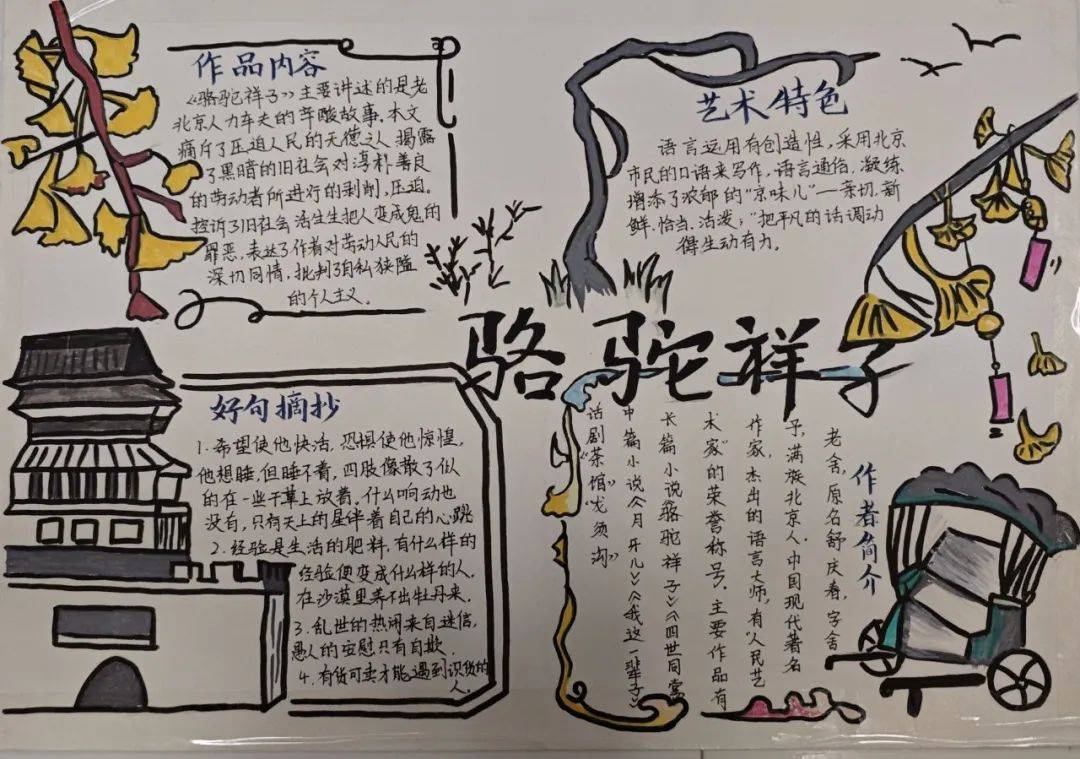 作品内容
《骆驼祥子》主要讲述的是老
北京人力车夫的辛酸故事。本文
痛斥了压迫人民的无德之人，揭露
了黑暗的旧社会对淳朴善良
的劳动者所进行的剥削，压迫。
控诉了旧社会活生生把人变成鬼的
罪恶，表达了作者对劳动人民的
深切同情，批判了自私狭隘
的个人主义。
艺术特色
语言运用有创造性，采用北京
市民的口语来写作，语言通俗，凝练
增添了浓郁的“京味儿”一亲切、新
鲜、恰当、活泼，“把平凡的话调动
得生动有力。
骆驼祥子
好句摘抄
1.希望使他快活，恐惧使他惊惶，
他想睡，但睡不着，四肢像散了似
的在一些干草上放着。什么响动也
没有，只有天上的星伴着自己的心跳
2.经验是生活的肥料，有什么样的
经验便变成什么样的人，
在沙漠里养不出牡丹来。
3.乱世的热闹来自迷信，
愚人的安慰只有自欺
4.有货可卖才能遇到识货的
人。
作者简介
老舍，原名舒庆春，字舍
予，满族北京人，中国现代著名
作家，杰出的语言大师，有“人民艺
术家”的荣誉称号，主要作品有
长篇小说《骆驼祥子》《四世同堂
中篇小说《月牙儿》《我这一辈子》
话剧《茶馆》《龙须沟》